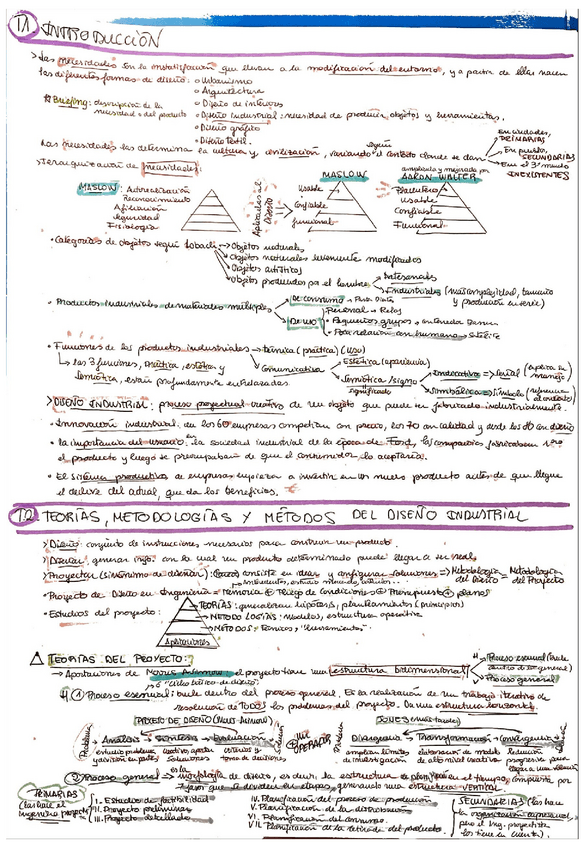 1.1 INTRODUCCIÓN
> Las necesidades son la insatisfacción que llevan a la modificación del entorno, y a partir de ellas nacen
las diferentes formas de diseño: o Urbanismo
o Arquitectura
o Diseño de interiores
Briefing: descripción de la necesidad del producto
o Diseño industrial: necesidad de producir objetos y herramientas.
o Diseño gráfico
o Diseño textil.
Las necesidades las determina la cultura y civilización, variando según el contexto donde se dan
En ciudades, PRIMARIAS
En pueblos, SECUNDARIAS
En el 3er mundo INEXISTENTES
> Jerarquización de necesidades:
MASLOW: Autorrealización
Reconocimiento
Afiliación
Seguridad
Fisiología
Aplicadas al Diseño
MASLOW
Usable
Confiable
Funcional
ampliada y mejorada por
AARON WALTER
Placentera
Usable
Confiable
Funcional
• Categorías de objetos según Lobach
Objetos naturales
Objetos naturales levemente modificados
Objetos artísticos
Objetos producidos por el hombre
Artesanales
Industriales (mayor complejidad, tamaño
y producción en serie)
• Productos industriales de materiales múltiples
De consumo
De uso
Personal → Reloj
Pequeños grupos
Poca relación con humano → Satélite
• Funciones de los productos industriales → técnica (práctica) (uso)
Comunicativa
Estética (apariencia)
Semiótica/signo
significado
Indicativa => Señal (explica su manejo)
Simbólica => Símbolo (referencia al contexto)
Las 3 funciones, práctica, estética y
semiótica, están profundamente enlazadas.
> DISEÑO INDUSTRIAL: proceso proyectual-creativo de un objeto que puede ser fabricado industrialmente.
• Innovación industrial: en los 60 empresas competían con precio, los 70 con calidad y desde los 80 con diseño
• La importancia del usuario: en la sociedad industrial de la época de Ford, las compañías fabricaban
el producto y luego se preocupaban de que el consumidor lo aceptaría.
• El sistema productivo de empresas empieza a invertir en un nuevo producto antes de que llegue
el declive del actual, que da los beneficios.
1.2. TEORÍAS, METODOLOGÍAS Y MÉTODOS DEL DISEÑO INDUSTRIAL
> Diseño: conjunto de instrucciones necesarias para construir un producto.
> Diseñar: generar info. con la cual un producto determinado puede llegar a ser real.
> Proyectar (sinónimo de diseñar): consiste en idear y configurar soluciones => Metodología del Diseño = Metodología del Proyecto
• Proyecto de Diseño en Ingeniería = memoria + Pliego de Condiciones + Presupuesto + planos
• Estudios del proyecto:
TEORÍAS: generalizan hipótesis, planteamientos (principios)
METODOLOGÍAS: Modelos, estructura operativa
MÉTODOS: Técnicas, "herramientas".
Aplicaciones
TEORÍAS DEL PROYECTO:
> Aportaciones de Morris Asimow: el proyecto tiene una estructura bidimensional
Proceso esencial (bucle dentro del general)
Proceso general
① Proceso esencial: bucle dentro del proceso general. Es la realización de un trabajo iterativo de
resolución de TODOS los problemas del proyecto. Da una estructura horizontal.
PROCESO DE DISEÑO (MORRIS ASIMOW)
Análisis → Síntesis → Evaluación
estudio problema y división en partes
JONES
Divergencia → Transformación → Convergencia
ampliar límites de investigación
elaboración de modelo de alto nivel creativo
② Proceso general → es la morfología de diseño, es decir, la estructura de planificación en el tiempo, compuesta por
7 fases que se dividen en etapas, generando una estructura VERTICAL
PRIMARIAS
(las hace el ingeniero proyectista)
I. Estudios de factibilidad
II. Proyecto preliminar
III. Proyecto detallado
IV. Planificación del proceso de producción
V. Planificación de la distribución
VI. Planificación del consumo.
VII. Planificación de la retirada del producto.
SECUNDARIAS (las hace
la organización empresarial,
pero el ing. proyectista
los tiene en cuenta)